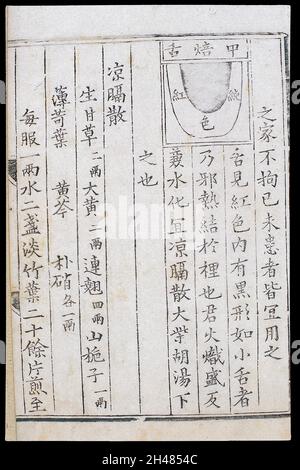 之家不拘已未患者皆宜用之
甲焙舌
純
紅
色
舌見紅色內有黑形如小舌者
乃邪熱結於裡也君火熾盛反
兼水化宜凉膈散大柴胡湯下
之也
凉膈散
生甘草二兩大黄二兩連翹四兩山梔子一兩
薄荷葉 黄芩 朴硝各一兩
每服一兩水二盞淡竹葉二十餘片煎至
alamy
Image ID: 2H4854C
www.alamy.com